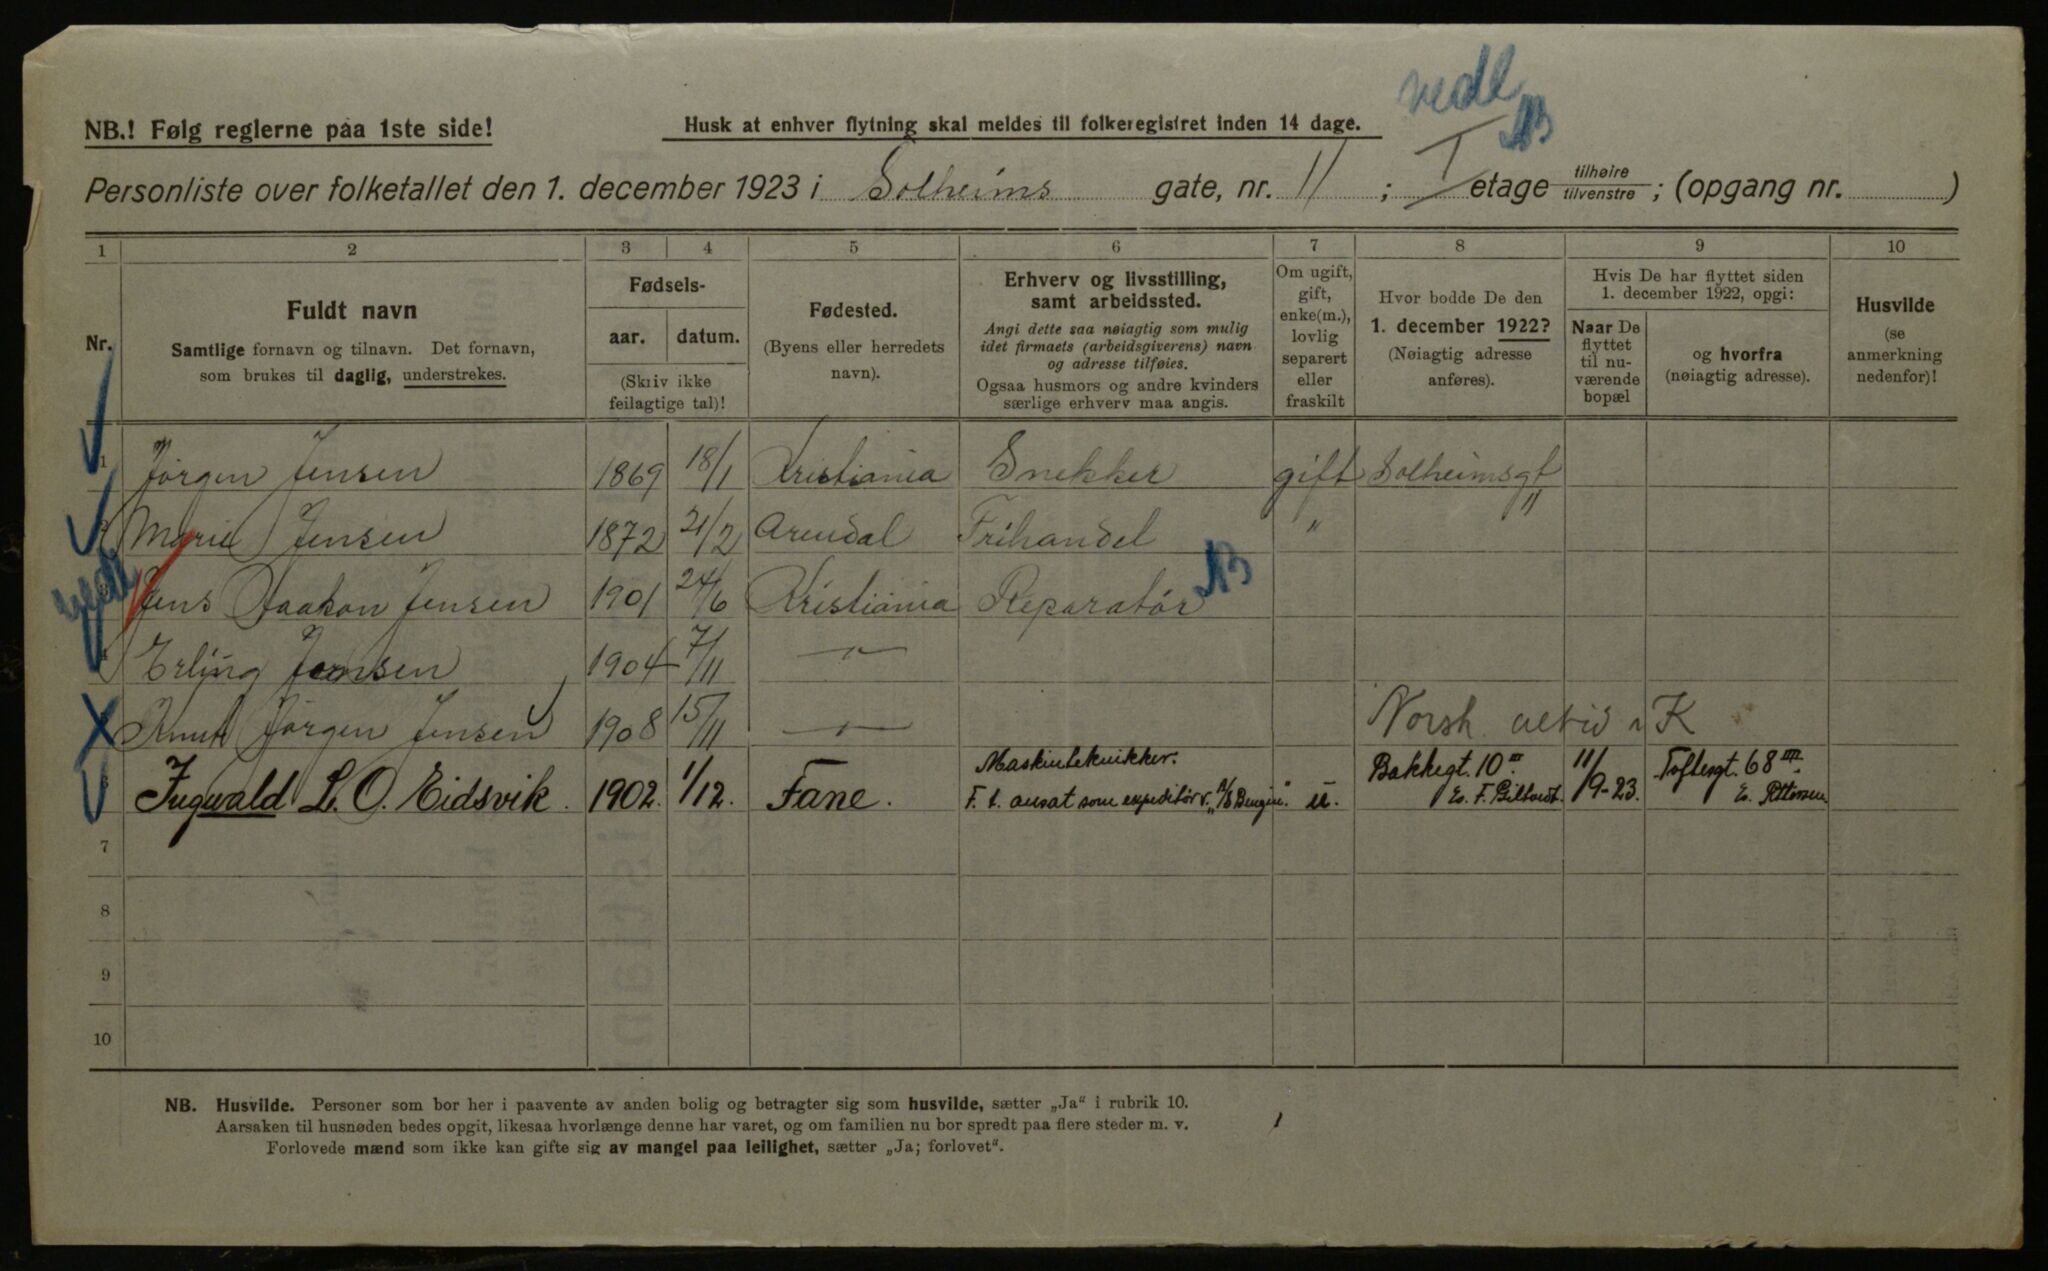 vedl
NB.! Følg reglerne paa 1ste side!
Husk at enhver flytning skal meldes til folkeregistret inden 14 dage.
Personliste over folketallet den 1. december 1923 i Solheims gate, nr. 11 ; I etage tilhøire tilvenstre ; (opgang nr. )
1 2 3 4 5 6 7 8 9 10
Nr.
Fuldt navn
Samtlige fornavn og tilnavn. Det fornavn,
som brukes til daglig, understrekes.
Fødsels-
aar. datum.
(Skriv ikke
feilagtige tal)!
Fødested.
(Byens eller herredets
navn).
Erhverv og livsstilling,
samt arbeidssted.
Angi dette saa nøiagtig som mulig
idet firmaets (arbeidsgiverens) navn
og adresse tilføies.
Ogsaa husmors og andre kvinders
særlige erhverv maa angis.
Om ugift,
gift,
enke(m.),
lovlig
separert
eller
fraskilt
Hvor bodde De den
1. december 1922?
(Nøiagtig adresse
anføres).
Hvis De har flyttet siden
1. december 1922, opgi:
Naar De
flyttet
til nu-
værende
bopæl
og hvorfra
(nøiagtig adresse).
Husvilde
(se
anmerkning
nedenfor)!
1 Jørgen Jensen 1869 18/1 Kristiania Snekker gift Solheimsgt
Marie Jensen 1872 21/2 Arendal Frihandel " "
Jens Haakon Jensen 1901 24/6 Kristiania Reparatør
4 Erling Jensen 1904 7/11 — " —
Knut Jørgen Jensen 1908 15/11 — " — Norsk altid i K
Ingwald L. O. Eidsvik. 1902. 1/12. Fane. Maskinteknikker. u. Bakkegt. 10 III 11/9-23. Toftesgt. 68 III
F. t. ansat som expeditör v. „A/S Bengin."
7
8
9
10
NB. Husvilde. Personer som bor her i paavente av anden bolig og betragter sig som husvilde, sætter „Ja" i rubrik 10.
Aarsaken til husnøden bedes opgit, likesaa hvorlænge denne har varet, og om familien nu bor spredt paa flere steder m. v.
Forlovede mænd som ikke kan gifte sig av mangel paa leilighet, sætter „Ja; forlovet".